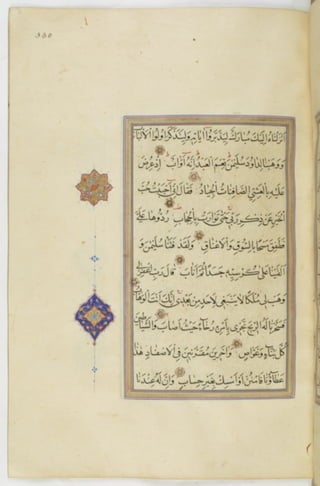 انزلناه اليك مبارك ليدبروا اياته وليتذكر اولوا الالباب
ووهبنا لداود سليمن نعم العبد انه اواب اذ عرض
عليه بالعشي الصافنات الجياد فقال اني احببت حب
الخير عن ذكر ربي حتى توارت بالحجاب ردوها علي
فطفق مسحا بالسوق والاعناق ولقد فتنا سليمن و
القينا على كرسيه جسدا ثم اناب قال رب اغفر لي
وهب لي ملكا لا ينبغي لاحد من بعدي انك انت الوهاب
فسخرنا له الريح تجري بامره رخاء حيث اصاب والشياطين
كل بناء وغواص واخرين مقرنين في الاصفاد هذا
عطاؤنا فامنن او امسك بغير حساب وان له عندنا